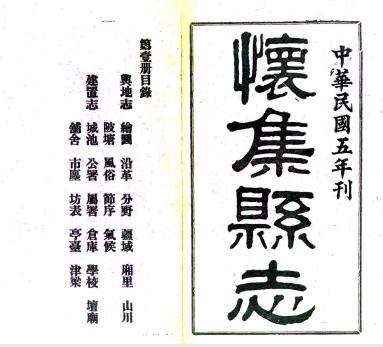 中華民國五年刊
懷集縣志
第壹册目錄
輿地志 繪圖 沿革 分野 疆域 廂里 山川
陂塘 風俗 節序 氣候
建置志 城池 公署 屬署 倉庫 學校 壇廟
舖舍 市廛 坊表 亭臺 津梁